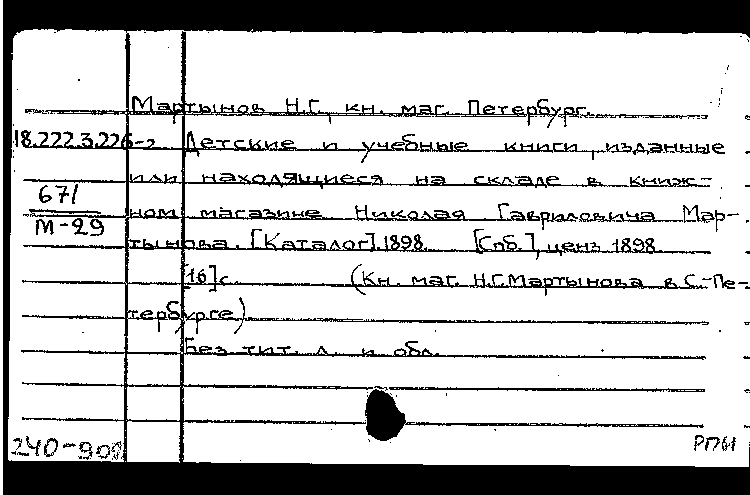 Мартынов Н.Г., кн. маг. Петербург.
18.222.3.226-2 Детские и учебные книги, изданные
или находящиеся на складе в книж-
671
М-29
ном магазине Николая Гавриловича Мар-
тынова. [Каталог]. 1898. [Спб.], ценз 1898.
[16] с. (Кн. маг. Н.Г. Мартынова в С.-Пе-
тербурге)
Без тит. л. и обл.
240-908